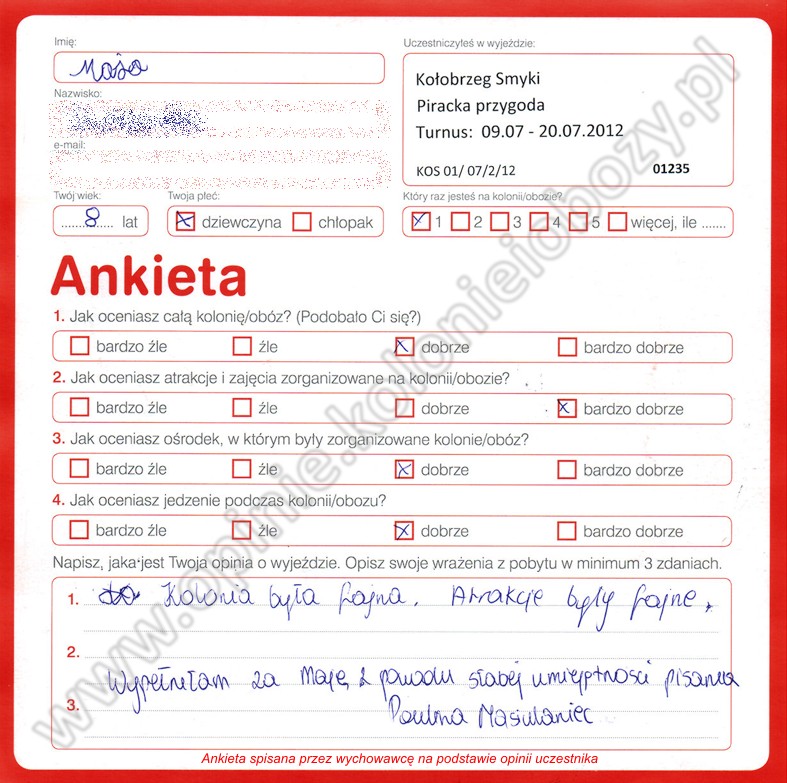 Imię:
Maja
Uczestniczyłeś w wyjeździe:
Kołobrzeg Smyki
Piracka przygoda
Turnus: 09.07 - 20.07.2012
KOS 01/ 07/2/12 01235
Nazwisko:
e-mail:
Twój wiek:
8 lat
Twoja płeć:
dziewczyna chłopak
Który raz jesteś na kolonii/obozie?
1 2 3 4 5 więcej, ile .......
Ankieta
1. Jak oceniasz całą kolonię/obóz? (Podobało Ci się?)
bardzo źle źle dobrze bardzo dobrze
2. Jak oceniasz atrakcje i zajęcia zorganizowane na kolonii/obozie?
bardzo źle źle dobrze bardzo dobrze
3. Jak oceniasz ośrodek, w którym były zorganizowane kolonie/obóz?
bardzo źle źle dobrze bardzo dobrze
4. Jak oceniasz jedzenie podczas kolonii/obozu?
bardzo źle źle dobrze bardzo dobrze
Napisz, jaka jest Twoja opinia o wyjeździe. Opisz swoje wrażenia z pobytu w minimum 3 zdaniach.
1. Kolonia była fajna. Atrakcje były fajne.
2.
Wypełniłam za Maję z powodu słabej umiejętności pisania
3. Paulina Masulaniec
Ankieta spisana przez wychowawcę na podstawie opinii uczestnika
www.opinie.kolonieiobozy.pl